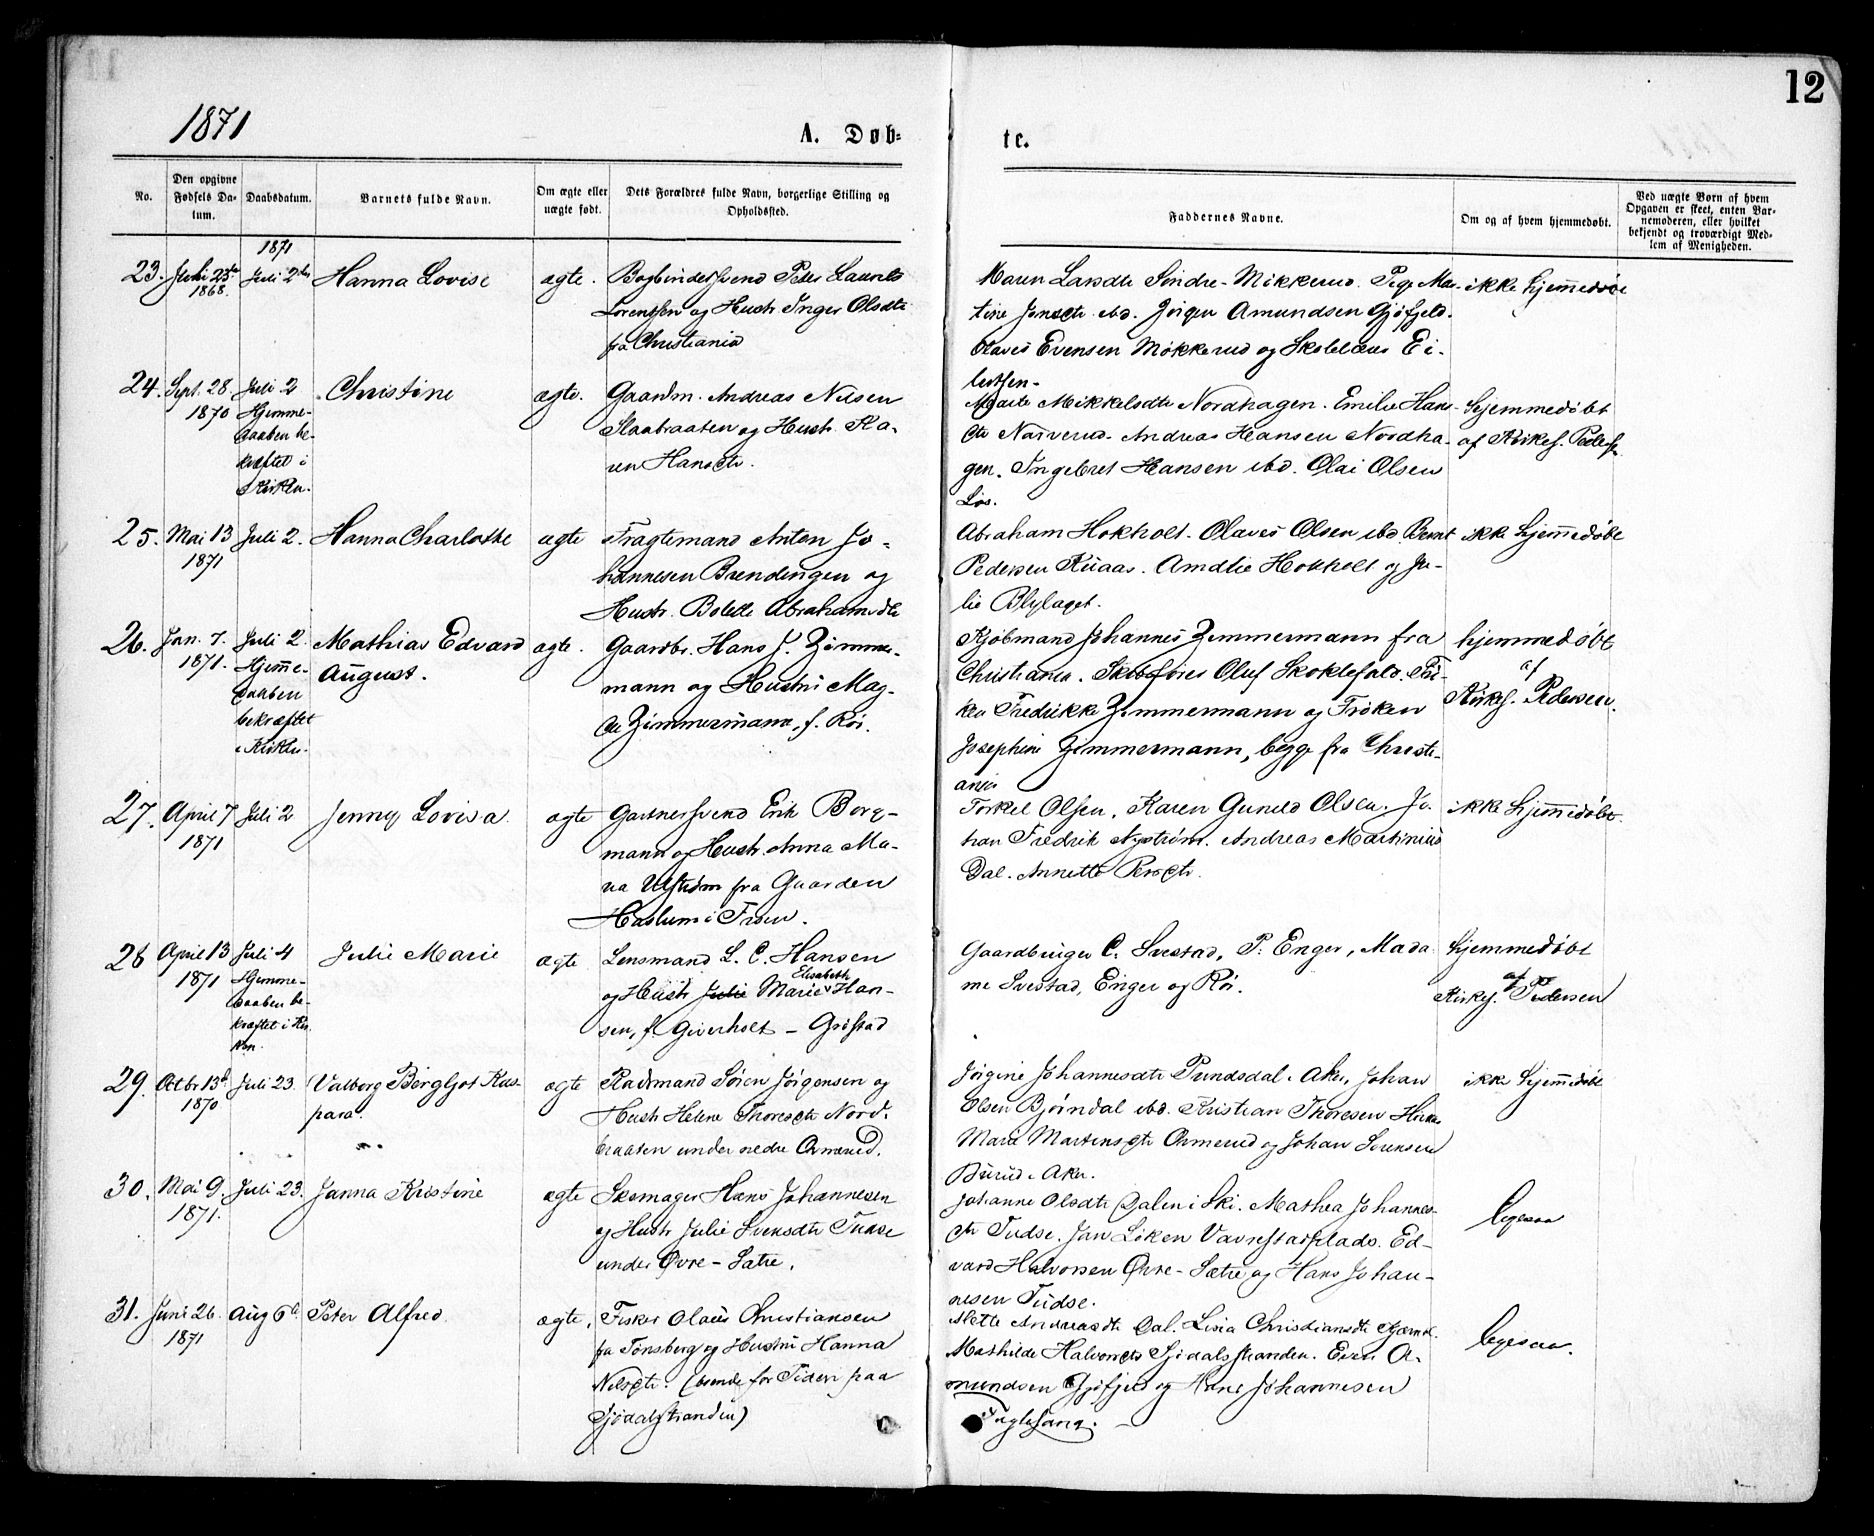 12
1871
A. Døb-
te.
No.
Den opgivne Fødsels Datum.
Daabsdatum.
Barnets fulde Navn.
Om ægte eller uægte født.
Dets Forældres fulde Navn, borgerlige Stilling og Opholdssted.
Faddernes Navne.
Om og af hvem hjemmedøbt.
Ved uægte Børn af hvem Opgaven er skeet, enten Barnemoderen, eller hvilket bekjendt og troværdigt Medlem af Menigheden.
1871
23.
1868.
Juli 2den
Hanna Lovise
ægte.
Bogbindersvend Peder Laurits
Lorentsen og Hustr. Inger Olsdtr
fra Christiania
Maren Larsdtr Søndre-Mikkerud.
tine Jensdtr ibd. Jörgen Amundsen Gjöfjeld.
Olaves Evensen Mökkerud og Ei-
lertsen.
ikke hjemmedøbt
24.
Sept. 28.
1870
Juli 2
Hjemme-
daaben be-
kræftet i
Kirken.
Christine
ægte.
Gaardm. Andreas Nilsen
Slaabraaten og Hustr. Ka-
ren Hansdtr.
Marte Mikkelsdtr Nordhagen. Emilie Hans-
dtr Narverud. Andreas Hansen Nordha-
gen. Ingebret Hansen ibd. Olai Olsen
Lös.
hjemmedøbt
af Kirkes. Pedersen
25.
Mai 13
1871
Juli 2.
Hanna Charlotte
ægte
Fragtemand Anton Jo-
hannesen Brendingen og
Hustr. Bolette Abrahamsdtr
Abraham Hokholt. Olaves Olsen ibd. Bernt
Pedersen Ruaas. Amalie Hokholt og Ju-
lie Blylaget.
ikke hjemmedøbt
26.
Jan. 7.
1871.
Juli 2
Hjemme-
daaben
bekræftet
i Kirken.
Mathias Edvard
August.
ægte.
Gaardbr. Hans J. Zimmer-
mann og Hustru Mag-
da Zimmermann, f. Röi.
Kjöbmand Johannes Zimmermann fra
Christiania. Skibsförer Oluf Skoklefald. Frö-
ken Fredrikke Zimmermann og Fröken
Josephine Zimmermann, begge fra Christi-
ania
hjemmedøbt
af
Kirkes. Pedersen.
27.
April 7
1871
Juli 2
Jenny Lovisa
ægte
Gartnersvend Erik Borg-
mann og Hustr. Anna Ma-
ria Ulström fra Gaarden
Haslum i Froen.
Torkel Olsen. Karen Gunild Olsen. Jo-
han Fredrik Nyström. Andreas Martinius
Dal. Annette Persdtr.
ikke hjemmedøbt.
28
April 13
1871
Juli 4
Hjemme-
daaben be-
kræftet i Kir-
ken.
Julie Marie
ægte
Lensmand L. C. Hansen
Elisabeth
og Hustr. Julie Marie Han-
sen, f. Giverholt - Gröstad
Gaardbruger C. Svestad, P. Enger, Mada-
me Svestad, Enger og Röi.
hjemmedøbt
af
Kirkes. Pedersen
29.
Octbr 13de
1870
Juli 23
Valborg Bergljot Kas-
para.
ægte
Radmand Sören Jörgensen og
Hustr. Helene Thoresdtr Nord-
braaten under nedre Ormerud.
Jörgine Johannesdtr Pundsdal i Aker, Johan
Olsen Bjørndal ibd. Kristian Thoresen
Marie Martinsdtr Ormerud og Johan Sörensen
i Aker.
ikke hjemmedøbt
30.
Mai 9.
1871.
Juli 23.
Janna Kristine
ægte
Skomager Hans Johannesen
og Hustr. Julie Svensdtr Tudse
under Øvre-Sætre.
Johanne Olsdtr Dalen i Ski. Mathea Johannes-
dtr Tudse. Jan Löken Vavrestasplads. Ed-
vard Halvorsen Øvre-Sætre og Hans Johan-
nesen Tudse.
ligesaa
31.
Juni 26.
1871
Aug 6te
Peter Alfred
ægte.
Fisker Olaus Christiansen
fra Tönsberg og Hustru Hanna
Nilsdtr. (boende for Tiden paa
Sjödalsstranden)
Mette Andreasdtr Dal. Lisia Christiansdtr
Mathilde Halvorsdtr Sjödalsstranden. Even A-
mundsen Gjöfjeld og Hans Johannesen
Fuglesang.
ligesaa.